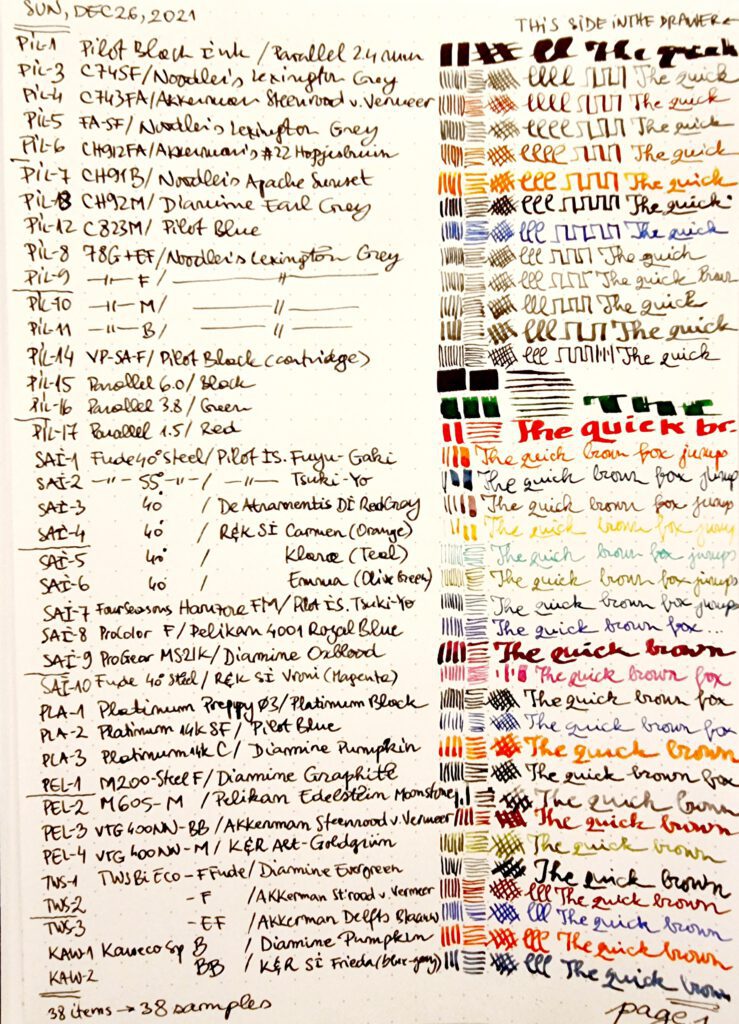 SUN, DEC 26, 2021
THIS SIDE IN THE DRAWER ←
PiL-1 Pilot Black ink / Parallel 2.4 mm The quick
PiL-3 C74SF/Noodler's Lexington Grey The quick
PiL-4 C743FA/Akkerman Steenrood v. Vermeer The quick
PiL-5 FA-SF/Noodler's Lexington Grey The quick
PiL-6 CH912FA/Akkerman's #22 Hopjesbruin The quick
PiL-7 CH91B/Noodler's Apache Sunset The quick
PiL-13 CH92M/Diamine Earl Grey The quick
PiL-12 C823M/Pilot Blue The quick
PiL-8 78G+EF/Noodler's Lexington Grey The quick
PiL-9 —"— F / —"— The quick Brown
PiL-10 —"— M / —"— The quick
PiL-11 —"— B / —"— The quick
PiL-14 VP-SA-F/Pilot Black (cartridge) The quick
PiL-15 Parallel 6.0/Black
PiL-16 Parallel 3.8/Green The
PiL-17 Parallel 1.5/Red The quick br.
SAI-1 Fude 40° Steel/Pilot IS. Fuyu-Gaki The quick brown fox jumps
SAI-2 —"— 55° —"— / —"— Tsuki-Yo The quick brown fox jump
SAI-3 40° / De Atramentis DI Red Gray The quick brown fox jump
SAI-4 40° / R&K SI Carmen (Orange) The quick brown fox jump
SAI-5 40° / Klara (Teal) The quick brown fox jumps
SAI-6 40° / Emma (Olive Green) The quick brown fox jumps
SAI-7 Four Seasons FM/Pilot IS. Tsuki-Yo The quick brown fox jumps
SAI-8 ProColor F/Pelikan 4001 Royal Blue The quick brown fox ...
SAI-9 ProGear MS21K/Diamine Oxblood The quick brown
SAI-10 Fude 40° Steel/R&K SI Vroni (Magenta) The quick brown fox
PLA-1 Platinum Preppy 03/Platinum Black The quick brown fox
PLA-2 Platinum 14k SF/Pilot Blue The quick brown fox
PLA-3 Platinum 14k C/Diamine Pumpkin The quick brown
PEL-1 M200-Steel F/Diamine Graphite The quick brown fox
PEL-2 M605-M /Pelikan Edelstein Moonstone The quick brown
PEL-3 VTG 400NN-BB/Akkerman Steenrood v. Vermeer The quick brown
PEL-4 VTG 400NN-M/K&R Alt-Goldgrün The quick brown
TWS-1 TWSBi Eco-F Fude/Diamine Evergreen The quick brown
TWS-2 -F /Akkerman St'rood v. Vermeer The quick brown
TWS-3 -EF /Akkerman Delfts Blauw The quick brown
KAW-1 Kaweco Sp B / Diamine Pumpkin The quick brown
KAW-2 BB / K&R SI Frieda (blue-grey) The quick brown
38 items → 38 samples
page 1